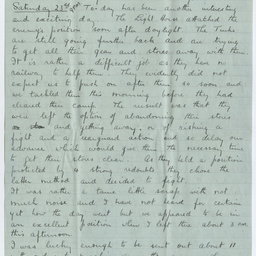 Saturday 23rd Today has been another interesting
and exciting day. The Light Horse attacked the
enemy's position soon after daylight. The Turks
are still going further back and are trying
to get all their gear and stores away with them
It is rather a difficult job as they have no
railway to help them. They evidently did not
expect us to push on after them so soon and
we tackled them this morning before they had
cleared their camp. The result was that they
were left the option of abandoning their stores
and getting away, or of fighting a
fight and a rearguard action and so delay our
advance which would give them the necessary time
to get their stores clear. As they held a position
protected by a strong redoubt they chose the
latter method and decided to fight.
It was rather a tame little scrap with not
much noise and I have not heard for certain
yet how the day went but we appeared to be in
an excellent position when I left there about 3 a.m.
this afternoon.
I was lucky enough to be sent out about 11